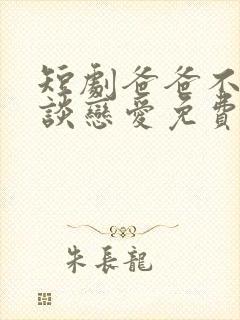 短劇爸爸不
談戀愛免費
朱長龍